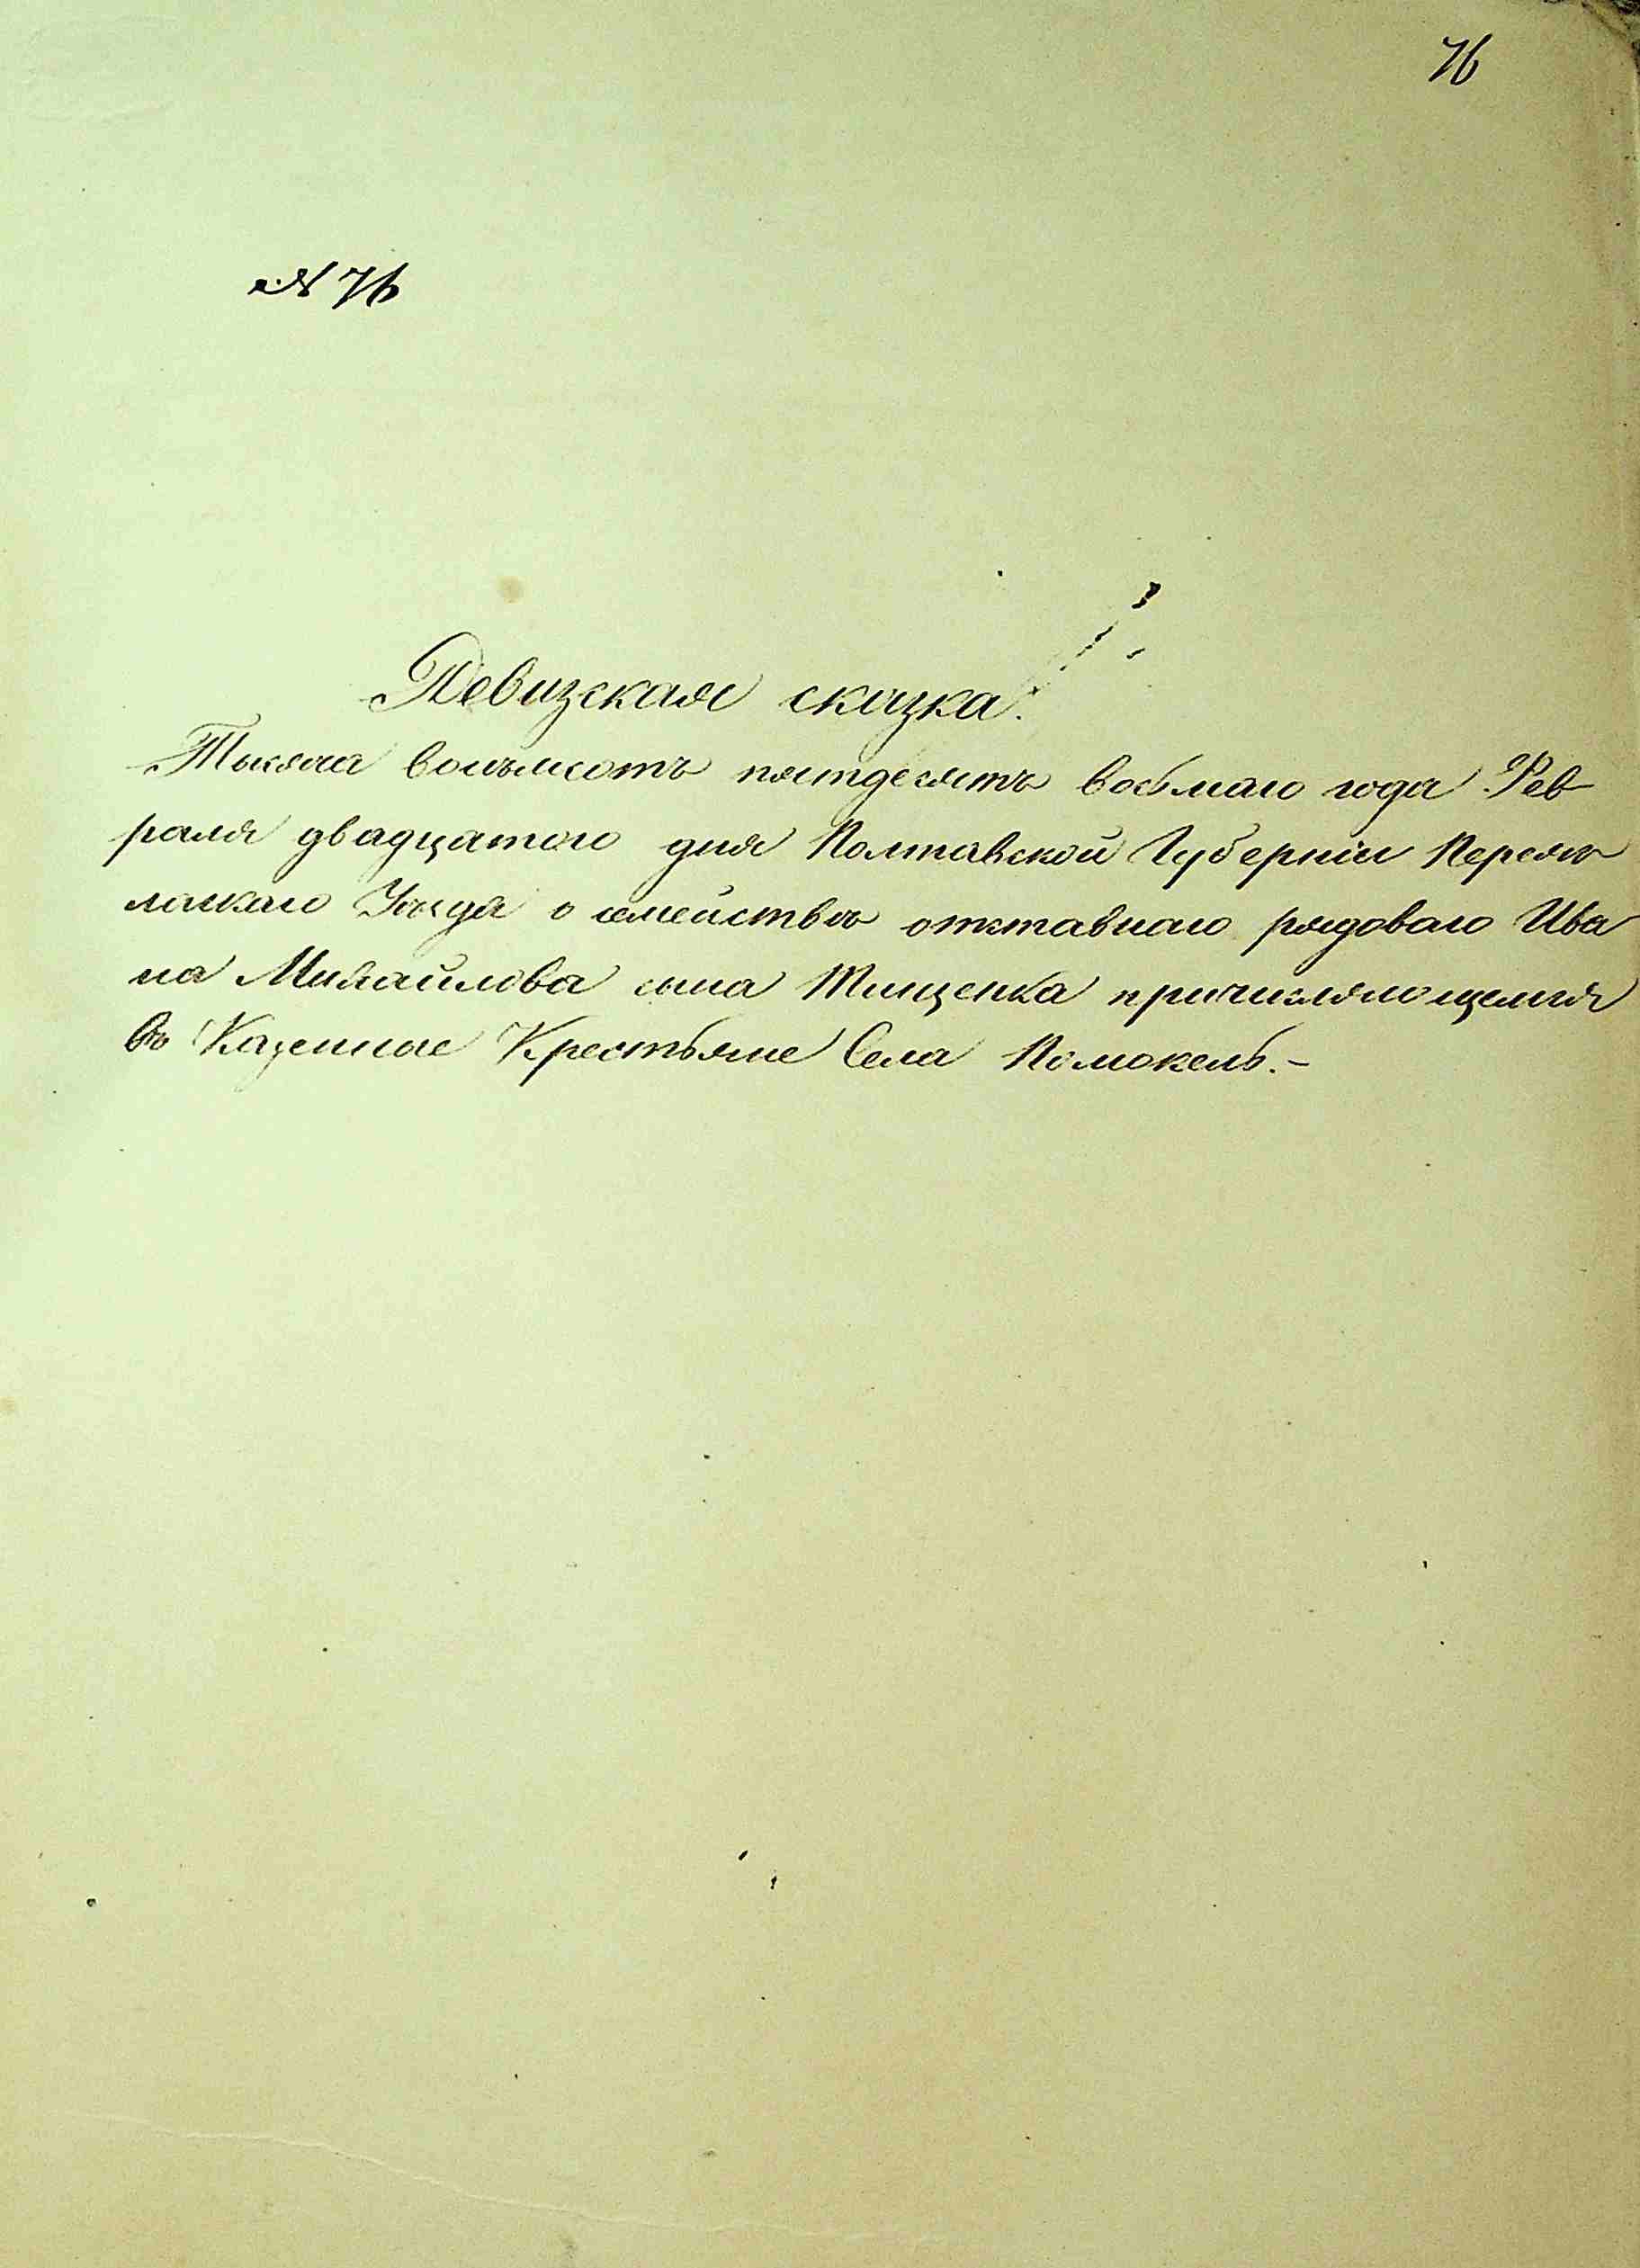 76
№ 76
Ревизская сказка.
Тысяча восьмсотъ пятдесятъ восьмаго года Фев
раля двадцатого дня Полтавской Губерніи Переяс
лавскаго Уезда о семействѣ отставнаго рядоваго Ива
на Михайлова сына Тищенка причисляющемся
въ Казенные Крестьяне Села Помокель.-